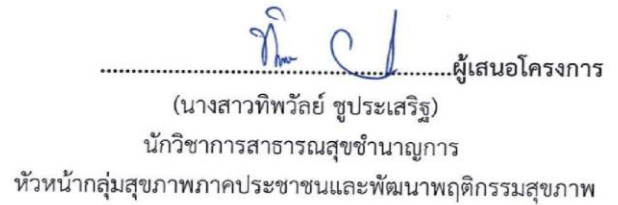 ....................................................ผู้เสนอโครงการ
(นางสาวทิพวัลย์ ชูประเสริฐ)
นักวิชาการสาธารณสุขชำนาญการ
หัวหน้ากลุ่มสุขภาพภาคประชาชนและพัฒนาพฤติกรรมสุขภาพ